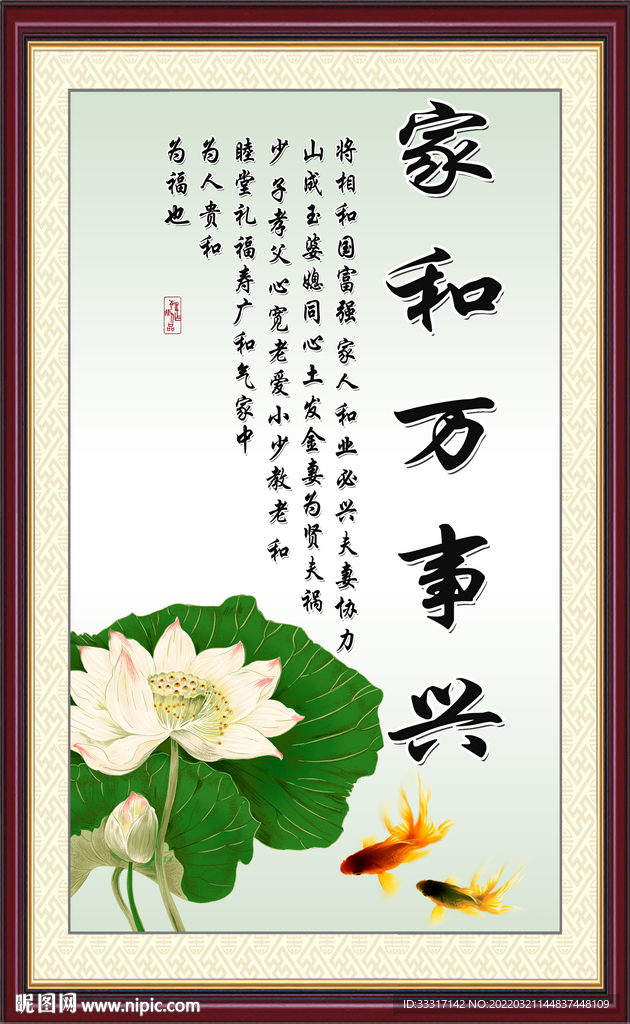 家和万事兴
将相和国富强家人和业必兴夫妻协力
山成玉婆媳同心土发金妻为贤夫祸
少子孝父心宽老爱小少教老和
睦堂礼福寿广和气家中
为人贵和
为福也
昵图网 www.nipic.com
ID:33317142 NO:20220321144837448109